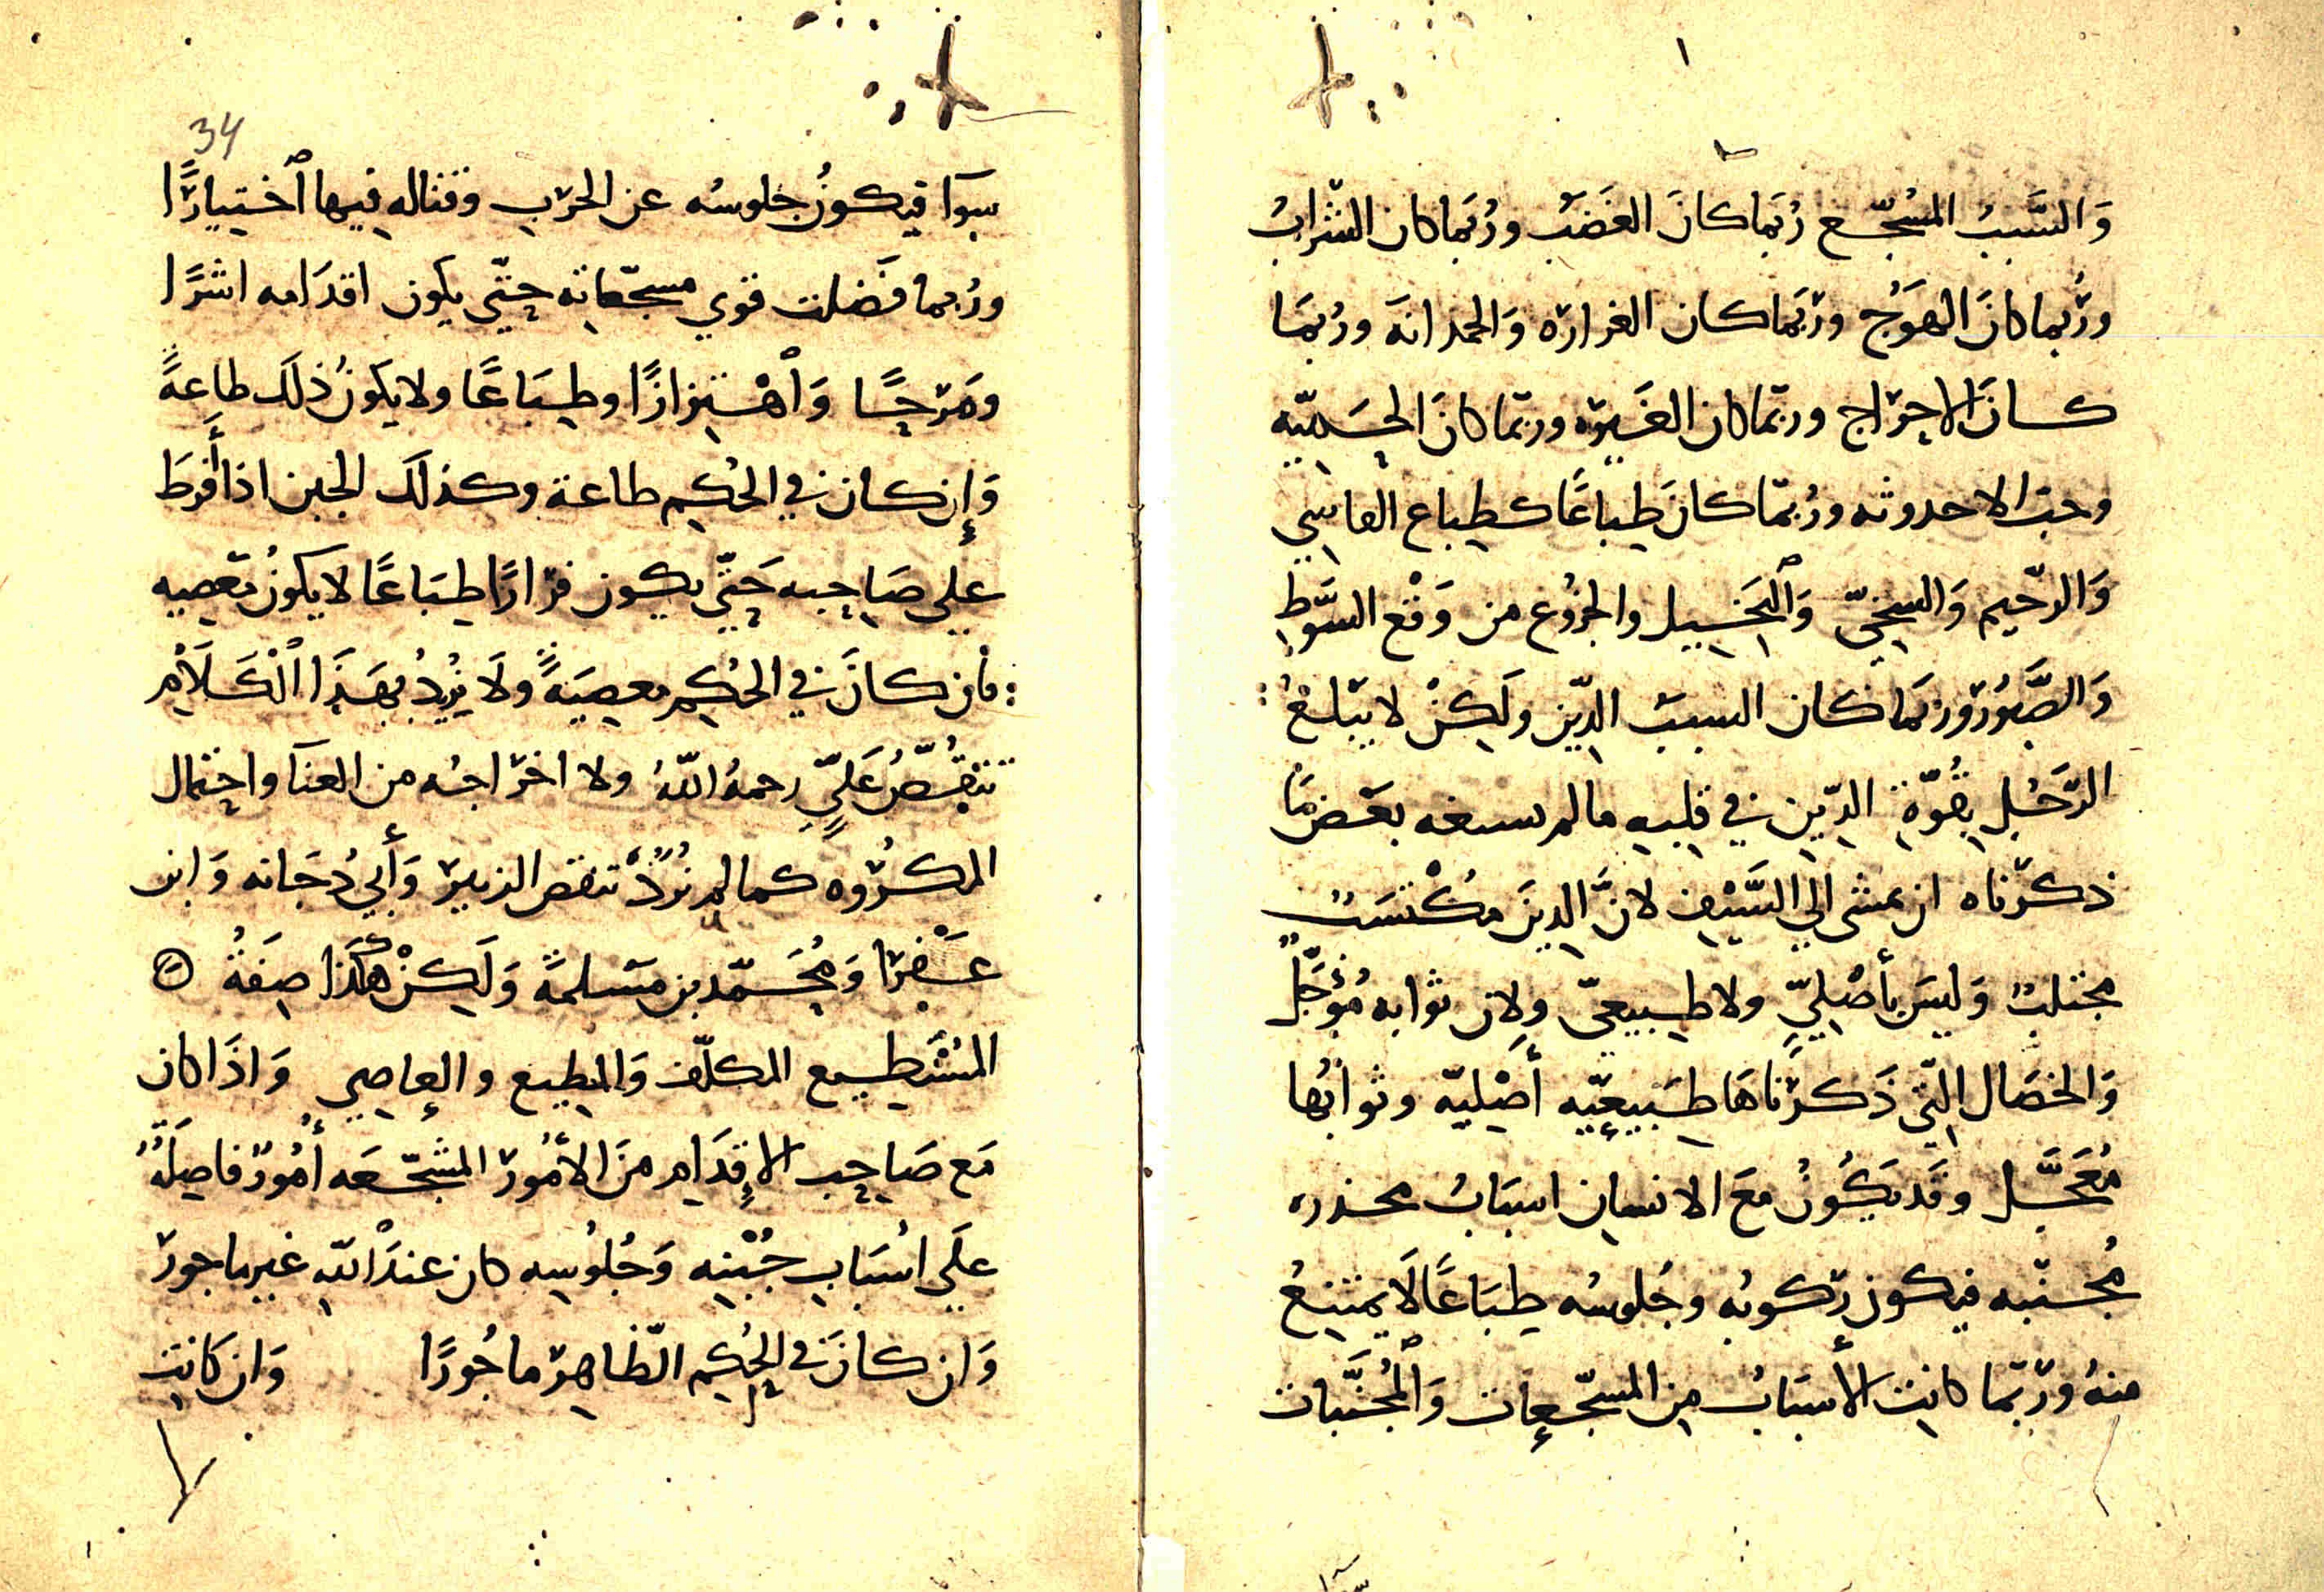 وَالسَّبَبُ المُشجّع رُبَما كانَ الغَضَبَ ورُبَما كان الشّرابُ
ورُبما كانَ الهَوَجُ وربَما كان الغرارَه وَالحداثة ورُبمَا
كانَ الاحرَاج وربّما كان الغَيرَه وربّما كانَ الحَميّه
وحبّ الاحدوثه ورُبّما كانَ طِباعًا كطباع القاسِي
وَالرّحيم وَالسخِيّ وَٱلبَخيل والجزُوع من وَقْع السَّوطِ
وَالصَّبُورْ ورُبَما كان السببَ الدّين ولَكِنْ لا يَبلغُ
الرَّجُل بِقُوّةِ الدّين في قلبِه ما لم يسعه بعْض مَا
ذكرْناه ان يمشى الي السَّيْفِ لانَّ الدِينَ مكْتسَبٌ
مجتلبٌ وَليسَ بأصْليٍّ ولا طبيعيّ ولان ثوابه مُؤجَّلٌ
وَالخصَال الّتي ذَكرْنَاهَا طَبيعيّه أصْليّه وثوابُها
مُعَجَّل وقَد يَكُونُ معَ الانسان اسبَابُ محذره
مُجنّبه فيكون ركوبُه وجُلوسُه طِبَاعًا لَا يمتنِعُ
منهُ وربّما كانت الأسبَابُ مِن المشجّعات وَٱلمُجنَّبات
34
سَوآ فيكونُ جلوسُه عن الحرْبِ وقتاله فِيها ٱختيارًا
ورُبما فَضَلت قوي مشجّعاته حتّي يكون اقدَامه اشرًا
ومَرَحًا وَٱهْتِزازًا وطِبَاعًا ولا يكونُ ذلكَ طاعةً
وَإن كان في الحُكم طاعة وكذلكَ الجبن اذا أفرطَ
علي صَاحِبه حَتّي يكون فرَارًا طِبَاعًا لا يكونُ مَعصيه
فأن كانَ في الحُكم معصِيَةً ولَا نُرِيدُ بهَذَا ٱلْكَلَامْ
تنقُّصَ عَليّ رحمهُ اللهُ ولا اخرَاجُه من العنآ واحتمال
المكرُوه كما لم نُرِدْ تنقص الزبير وَأَبي دُجَانه وَابن
عَفْرا وَمُحَمّد بن مَسْلمةَ وَلَكِنْ هكَذا صِفَةُ
المُسْتَطيع المكلّف وَالمطيع والعاصِي وَاذَا كان
مَع صَاحِب الإقدَام مِنَ الأمُور المشجّعَه أُمُورٌ فاضِلَةٌ
علَي اسْبَابِ جُبْنِه وَجُلُوسِه كان عندَ ٱللهِ غير ماجور
وَان كانَ في الحُكِم الظّاهِر ماجُورًا وَان كَانتِ